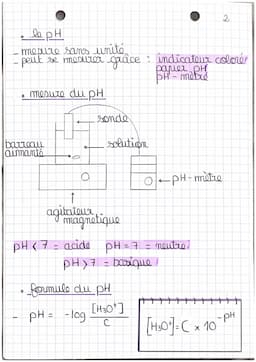 2
• le pH
- mesure sans unité
- peut se mesurer grâce : indicateur coloré
papier pH
pH-mètre
• mesure du pH
sonde
barreau aimanté
solution
pH-mètre
agitateur magnétique
pH < 7 = acide pH = 7 = neutre
pH > 7 = basique
• formule du pH
- pH = -log [H3O+] / C
[H3O+] = C × 10^-pH